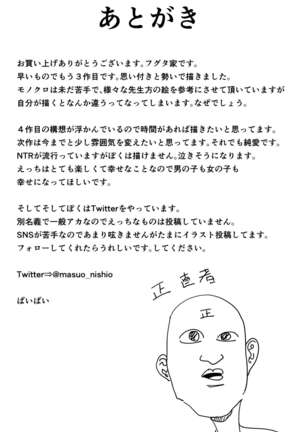 あとがき
お買い上げありがとうございます。フグタ家です。
早いものでもう3作目です。思い付きと勢いで描きました。
モノクロは未だ苦手で、様々な先生方の絵を参考にさせて頂いていますが
自分が描くとなんか違うってなってしまいます。なぜでしょう。
4作目の構想が浮かんでいるので時間があれば描きたいと思ってます。
次作は今までと少し雰囲気を変えたいと思ってます。それでも純愛です。
NTRが流行っていますがぼくは描けません。泣きそうになります。
えっちはとても楽しくて幸せなことなので男の子も女の子も
幸せになってほしいです。
そしてそしてぼくはTwitterをやっています。
別名義で一般アカなのでえっちなものは投稿していません。
SNSが苦手なのであまり呟きませんがたまにイラスト投稿してます。
フォローしてくれたらうれしいです。してください。
Twitter⇒@masuo_nishio
ばいばい
正直者
正